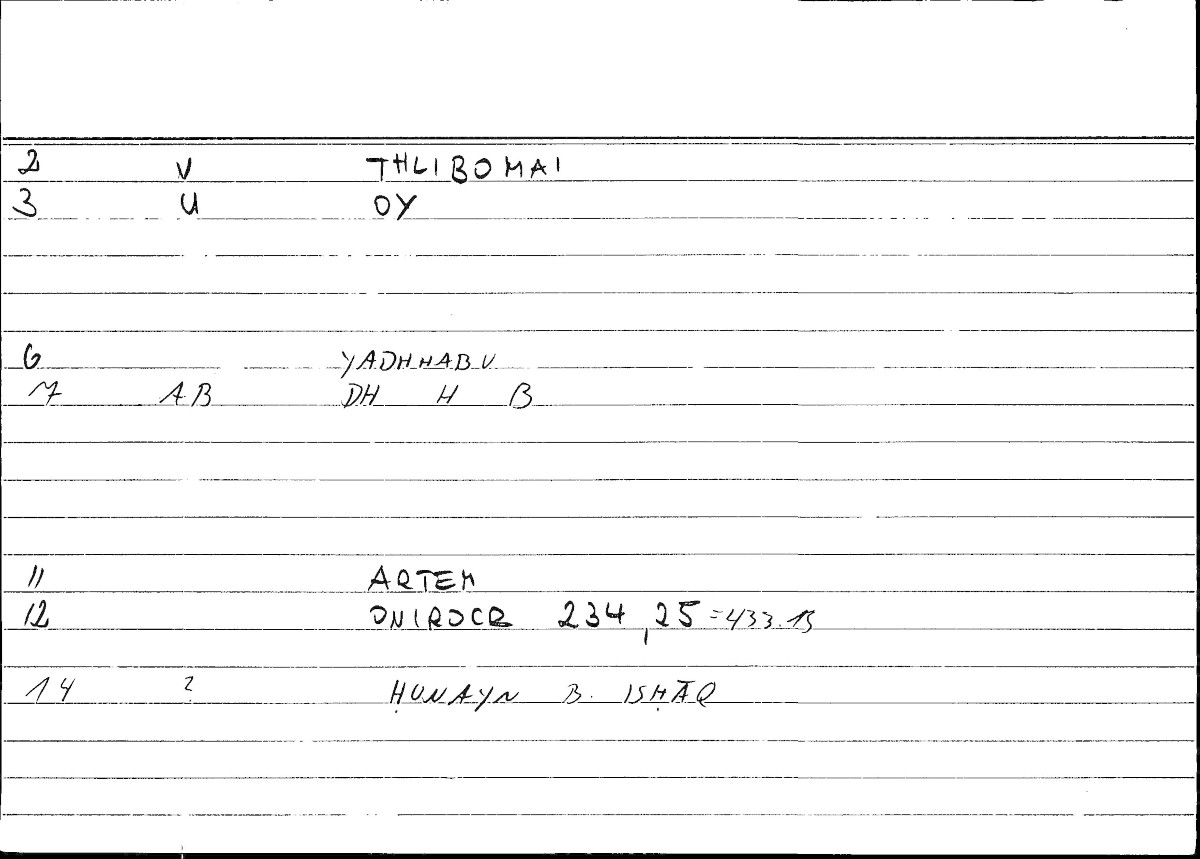 2 V THLIBOMAI
3 U OY
6 YADHHABU
7 AB DH H B
11 ARTEM
12 ONIROCR 234,25 =433.13
14 ? ḤUNAYN B. ISḤĀQ